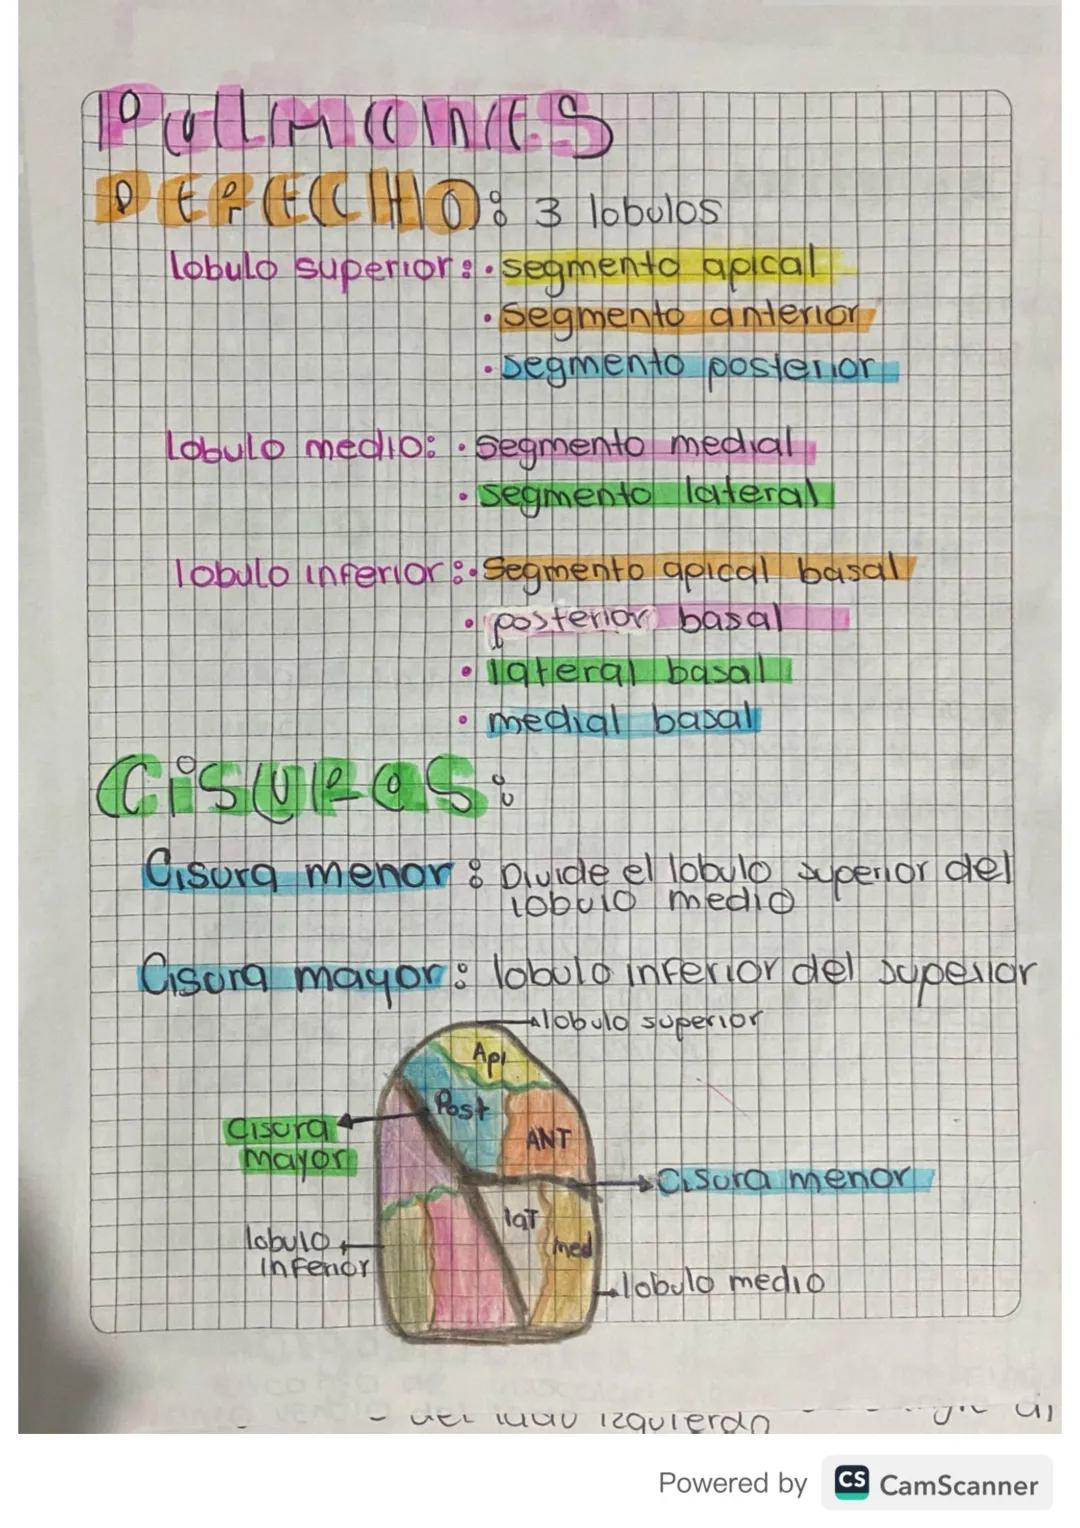 Pulmones
DERECHO: 3 lobulos
lobulo superior: · segmento apical
· Segmento anterior
· segmento posterior
Lobulo medio: · segmento medial
· segmento lateral
lobulo inferior: · Segmento apical basal
· posterior basal
· lateral basal
· medial basal
Cisuras:
Cisura menor: Divide el lobulo superior del
lobulo medio
Cisura mayor: lobulo inferior del superior
lobulo superior
Api
Post
Cisura
mayor
ANT
Cisura menor
lat
med
lobulo
inferior
lobulo medio
- del lado izquierdo
Powered by CS CamScanner